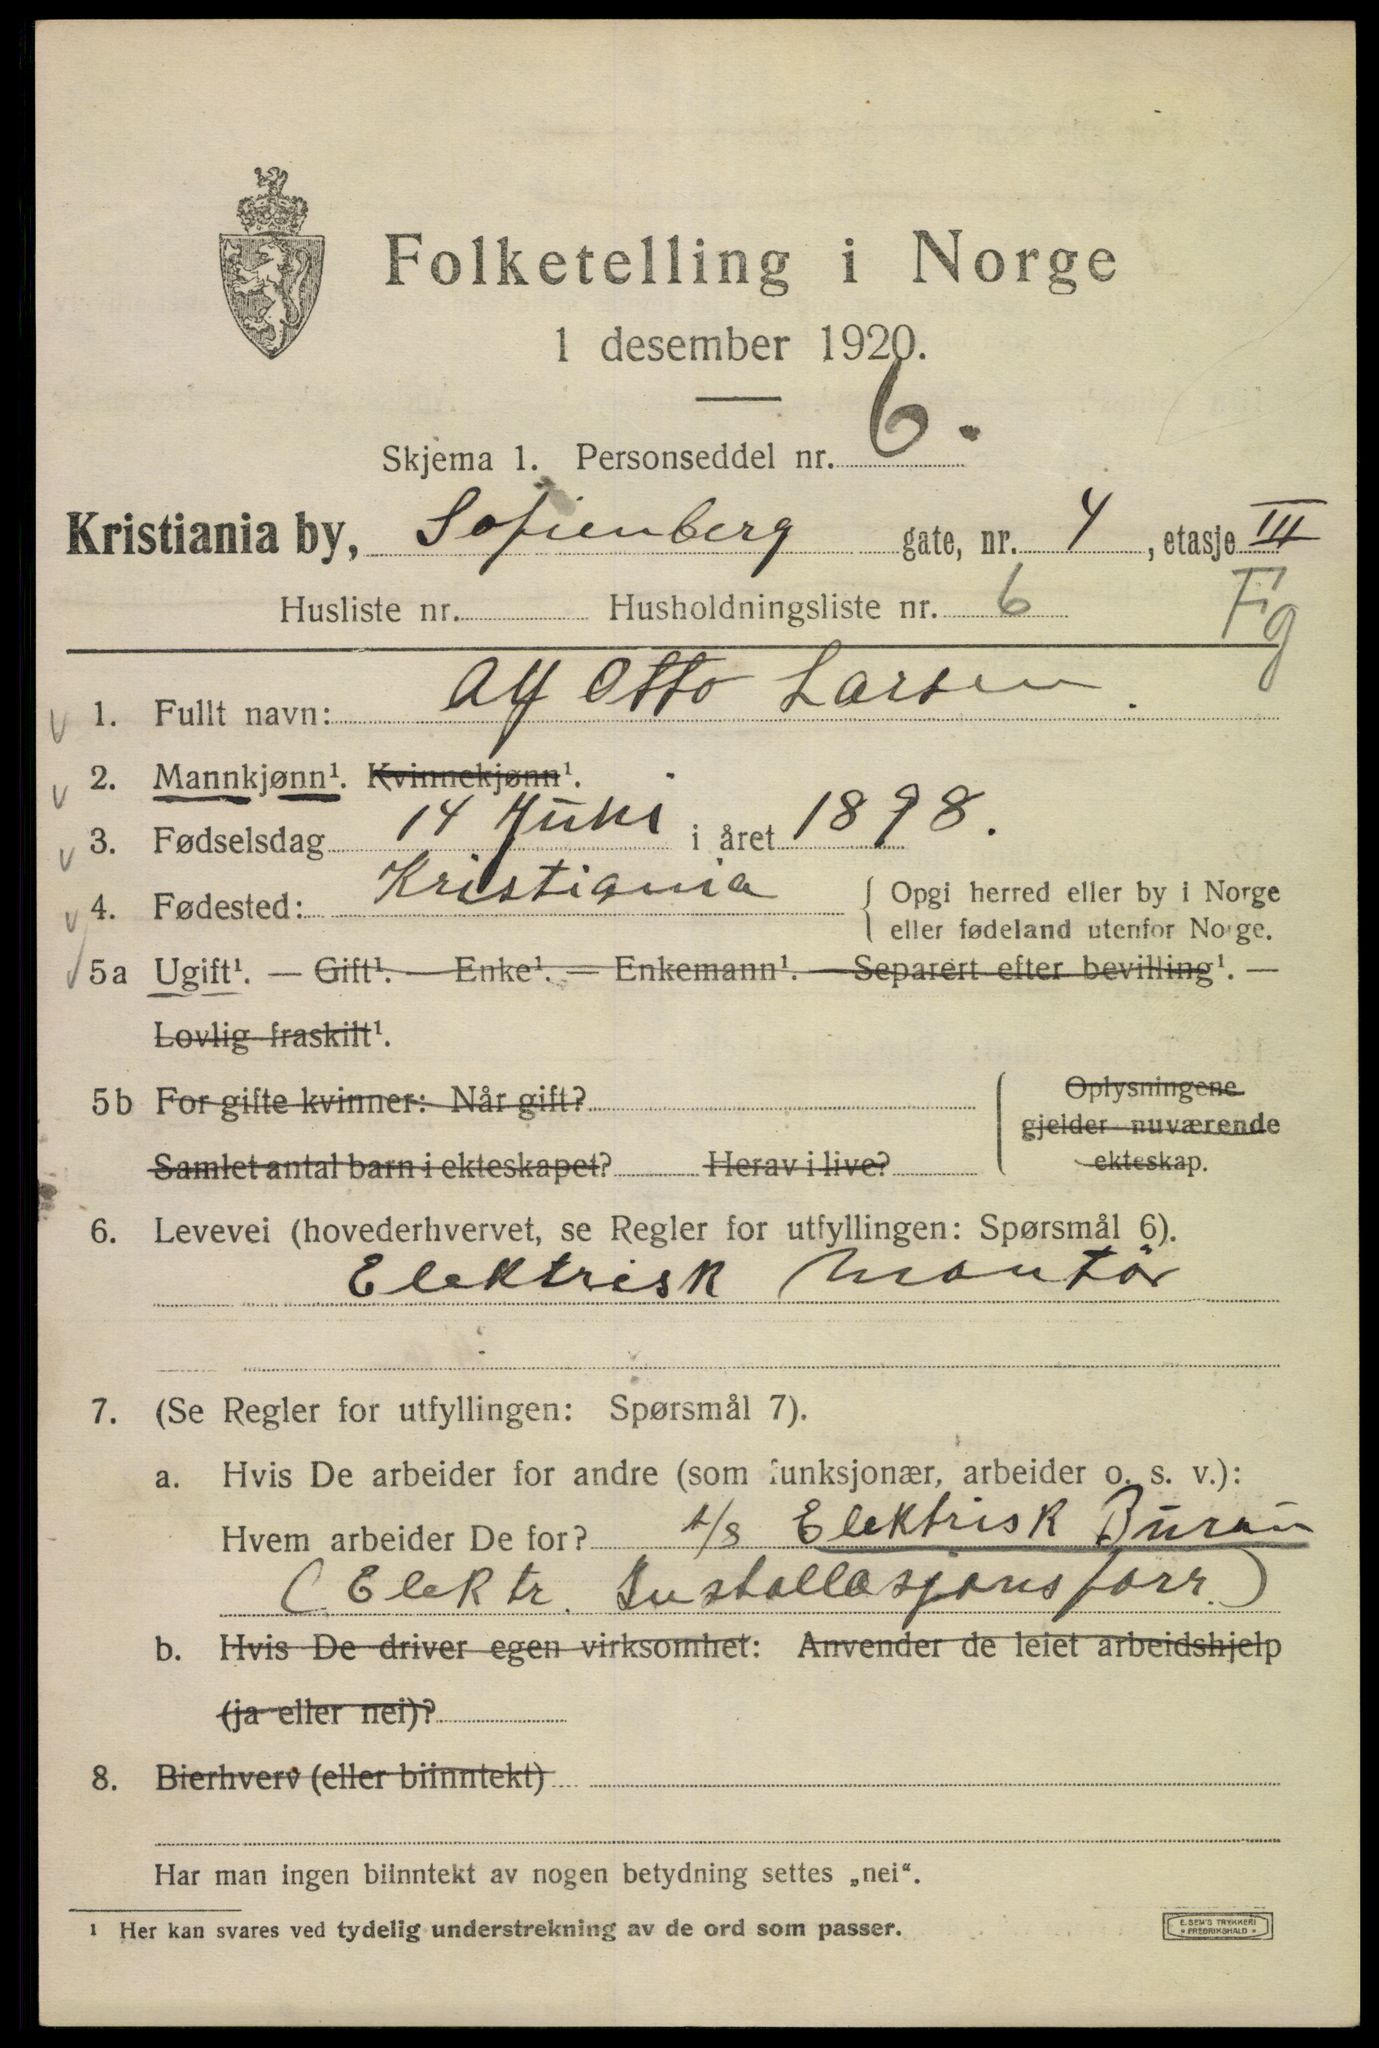 Folketelling i Norge
1 desember 1920.
Skjema 1. Personseddel nr. 6.
Kristiania by, Sofienberg gate, nr. 4, etasje III
Husliste nr. Husholdningsliste nr. 6 Fg
1. Fullt navn: Alf Otto Larsen.
2. Mannkjønn¹. Kvinnekjønn¹.
3. Fødselsdag 14 i året 1898.
4. Fødested: Kristiania { Opgi herred eller by i Norge
eller fødeland utenfor Norge.
5a Ugift¹. — Gift¹. — Enke¹. — Enkemann¹. — Separert efter bevilling¹. —
Lovlig fraskilt¹.
5b For gifte kvinner: Når gift? Oplysningene
gjelder nuværende
Samlet antal barn i ekteskapet? Herav i live? ekteskap.
6. Levevei (hovederhvervet, se Regler for utfyllingen: Spørsmål 6).
Elektrisk Montör
7. (Se Regler for utfyllingen: Spørsmål 7).
a. Hvis De arbeider for andre (som funksjonær, arbeider o. s. v.):
Hvem arbeider De for? A/S Elektrisk Burau
(Elektr. Installasjonsforr.)
b. Hvis De driver egen virksomhet: Anvender de leiet arbeidshjelp
(ja eller nei)?
8. Bierhverv (eller biinntekt)
Har man ingen biinntekt av nogen betydning settes „nei“.
¹ Her kan svares ved tydelig understrekning av de ord som passer.
E. SEM'S TRYKKERI
• FREDRIKSHALD •